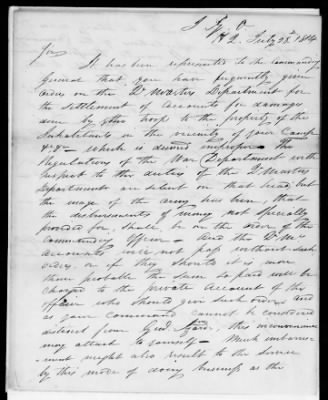 H. Q. July 23d 1814
Sir,
It has been represented to the Commanding
General that you have frequently given
orders on the Qr Masters Department for
the settlement of Accounts for damages
done by your troop to the property of the
Inhabitants in the vicinity of your Camp
&c &c — which is deemed improper — The
Regulations of the War Department with
respect to the duties of the Qr Masters
Departments are silent on that head but
the usage of the army has been, that
the disbursements of money not specially
provided for, shall be on the order of the
Commanding Officer — And the Qr Mrs
accounts will not pass without such
orders, or if they should it is more
than probable the sum so paid will be
charged to the private account of the
Officer who should give such orders, and
as your command cannot be considered
distinct from Genl this inconvenience
may attach to yourself — Much embarrass-
-ment might also result to the service
by this mode of doing business as the